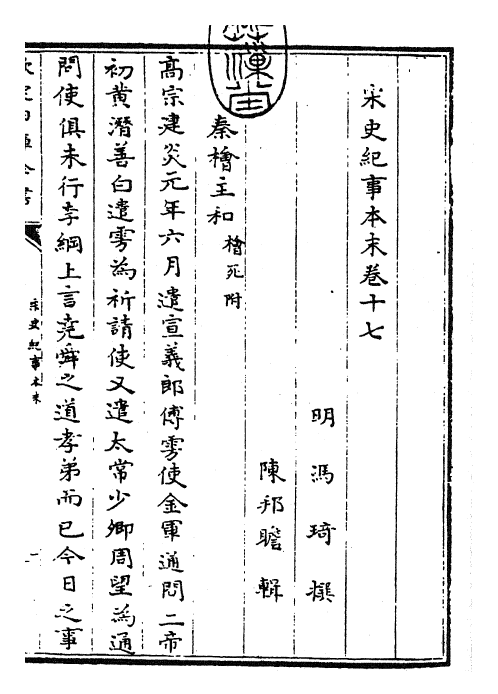 宋史紀事本末卷十七
明 馮琦 撰
陳邦瞻 輯
秦檜主和 檜死附
高宗建炎元年六月遣宣義郎傅雱使金軍通問二帝
初黃潛善白遣雱為祈請使又遣太常少卿周望為通
問使俱未行李綱上言堯舜之道孝弟而已今日之事
宋史紀事本末